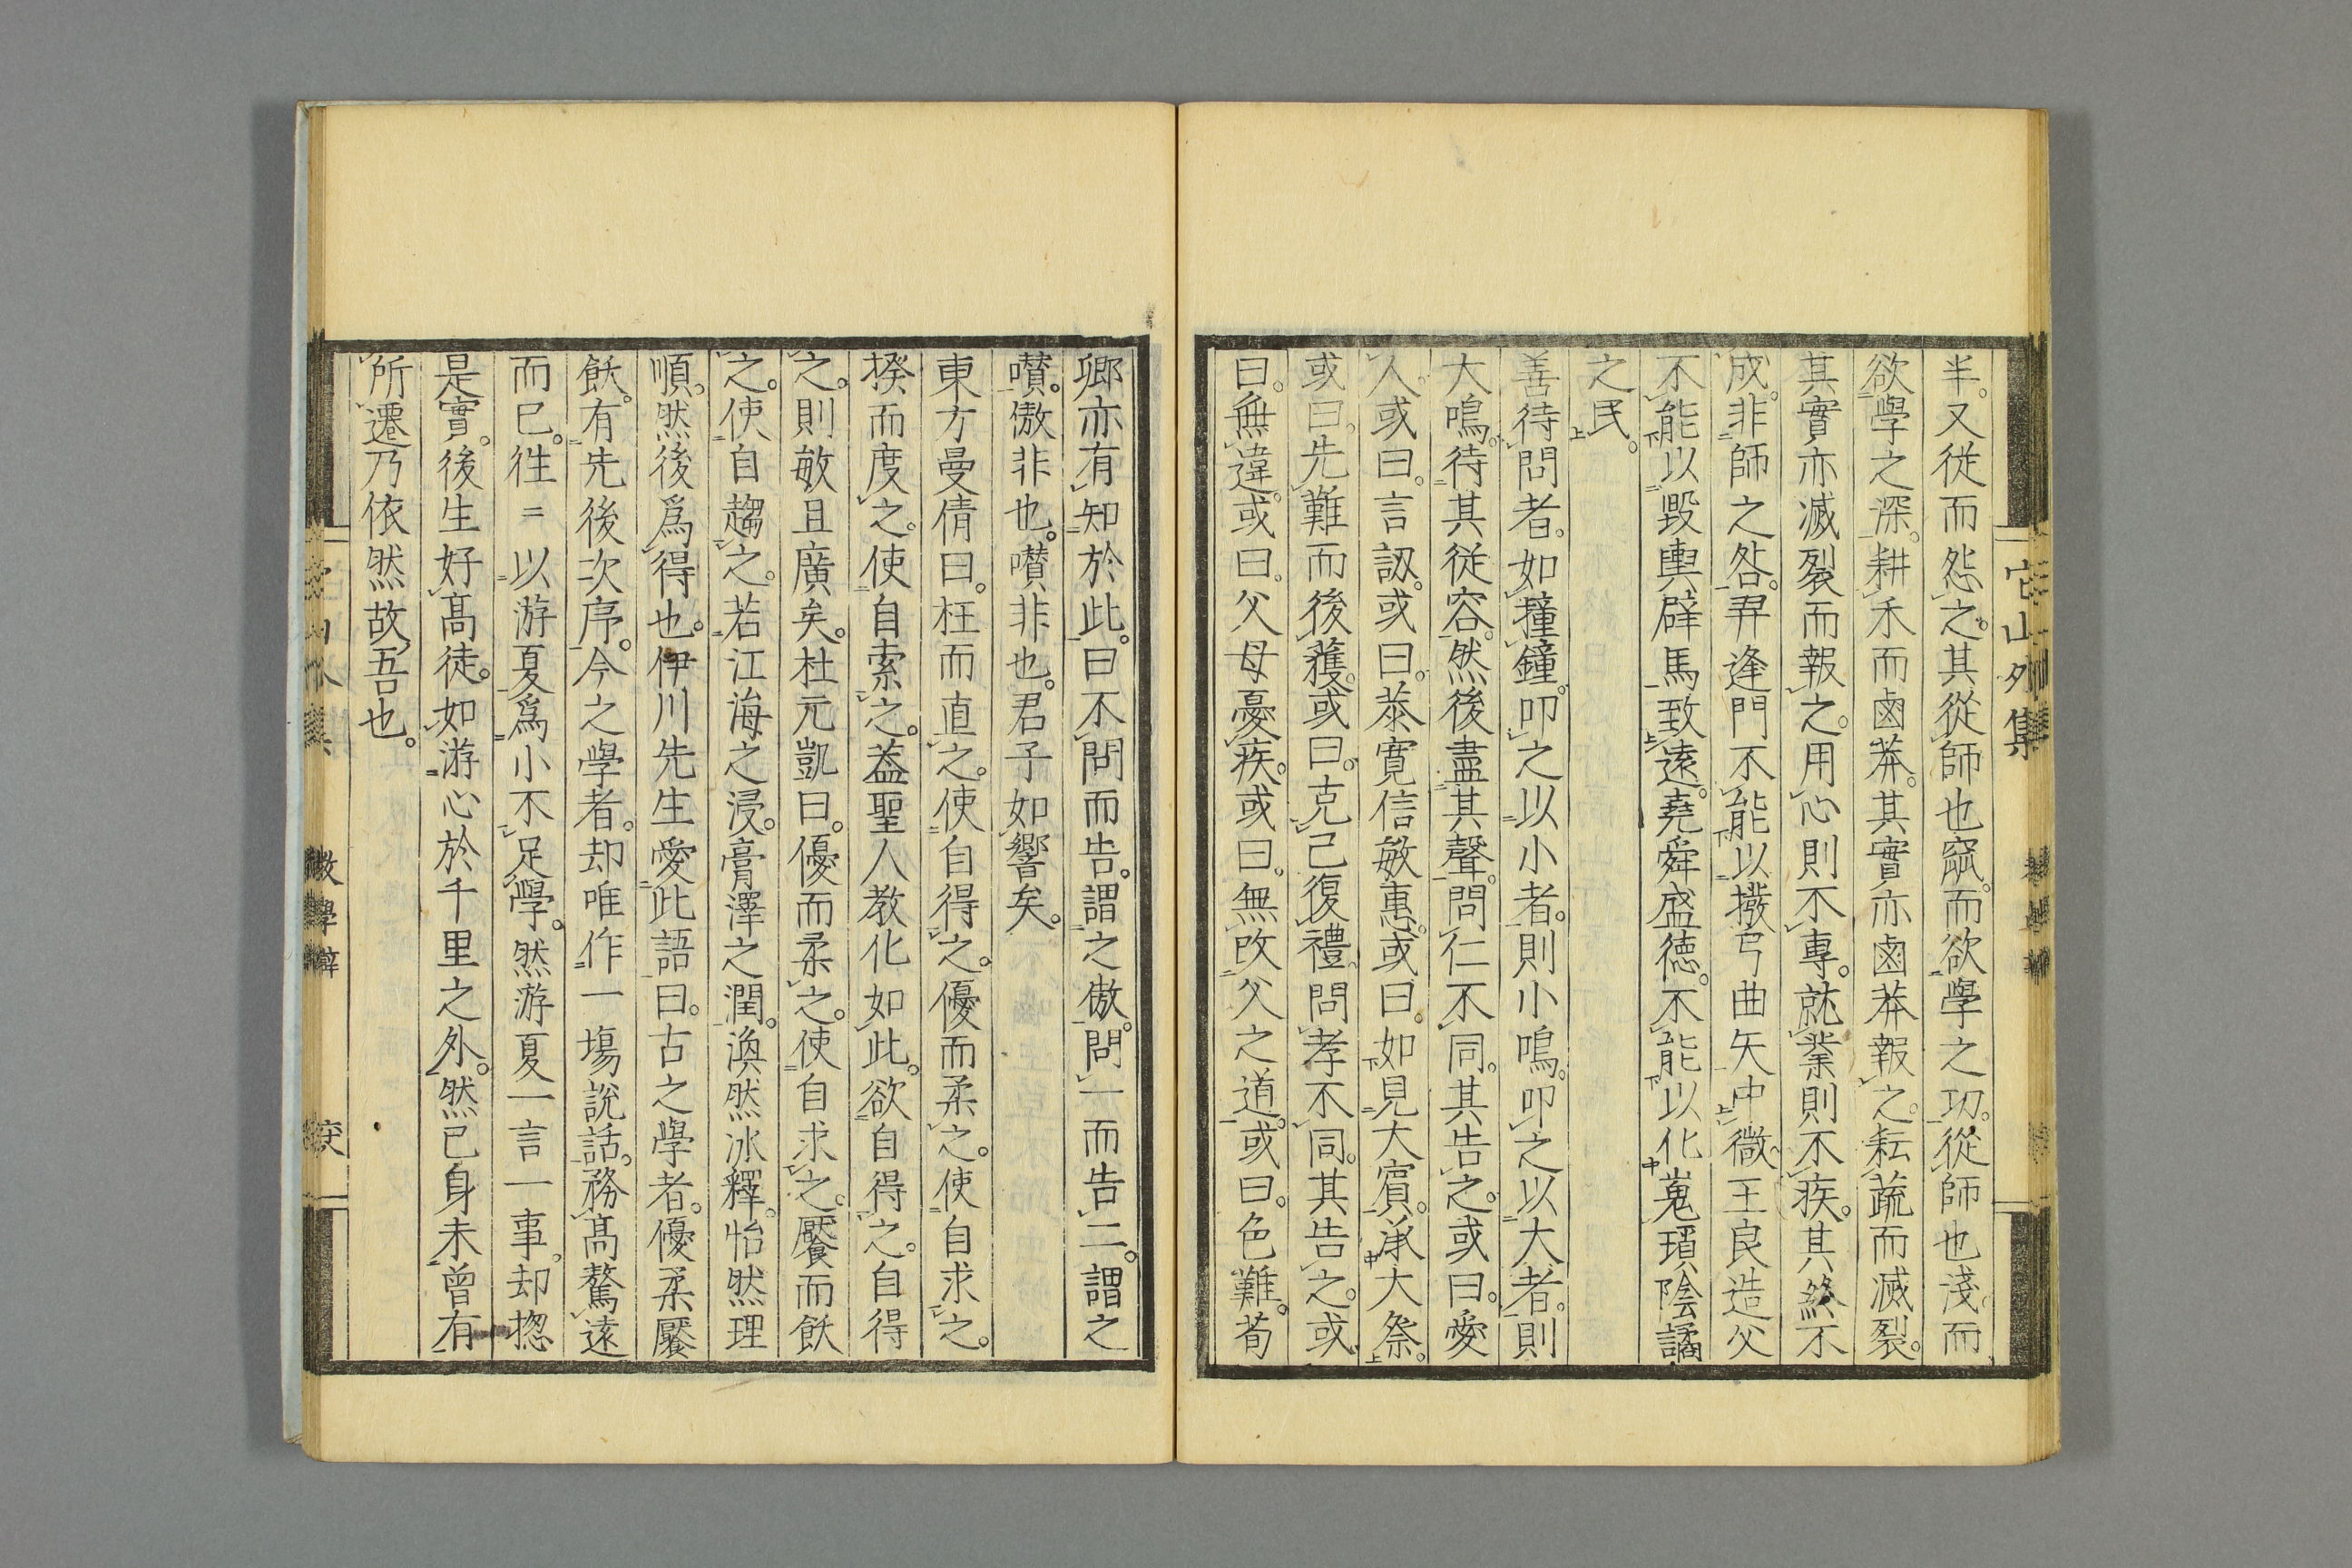 它山外集
半。又從而怨之。其從師也竄。而欲學之切。從師也淺。而
欲學之深。耕禾而鹵莽。其實亦鹵莽報之。耘蔬而滅裂。
其實亦滅裂而報之。用心則不專。就業則不疾。其終不
成。非師之咎。羿逢門不能以撥弓曲矢中微。王良造父
不能以毀輿辟馬致遠。堯舜盛德。不能以化嵬瑣陰譎
之民。
善待問者。如撞鐘。叩之以小者。則小鳴。叩之以大者。則
大鳴。待其從容。然後盡其聲。問仁不同。其告之。或曰。愛
人。或曰。言訒。或曰。恭寬信敏惠。或曰。如見大賓。承大祭。
或曰。先難而後獲。或曰。克己復禮。問孝不同。其告之。或
曰。無違。或曰。父母憂疾。或曰。無改父之道。或曰。色難。荀
卿亦有知於此。曰不問而告。謂之傲。問一而告二。謂之
囋。傲非也。囋非也。君子如響矣。
東方曼倩曰。枉而直之。使自得之。優而柔之。使自求之。
揆而度之。使自索之。葢聖人教化如此。欲自得之。自得
之。則敏且廣矣。杜元凱曰。優而柔之。使自求之。饜而飫
之。使自趨之。若江海之浸。膏澤之潤。渙然冰釋。怡然理
順。然後爲得也。伊川先生愛此語曰。古之學者。優柔饜
飫。有先後次序。今之學者。却唯作一塲說話。務高驁遠
而已。徃〻以游夏爲小不足學。然游夏一言一事。却揔
是實。後生好高徒。如游心於千里之外。然已身未曾有
所遷乃依然故吾也。
學辭